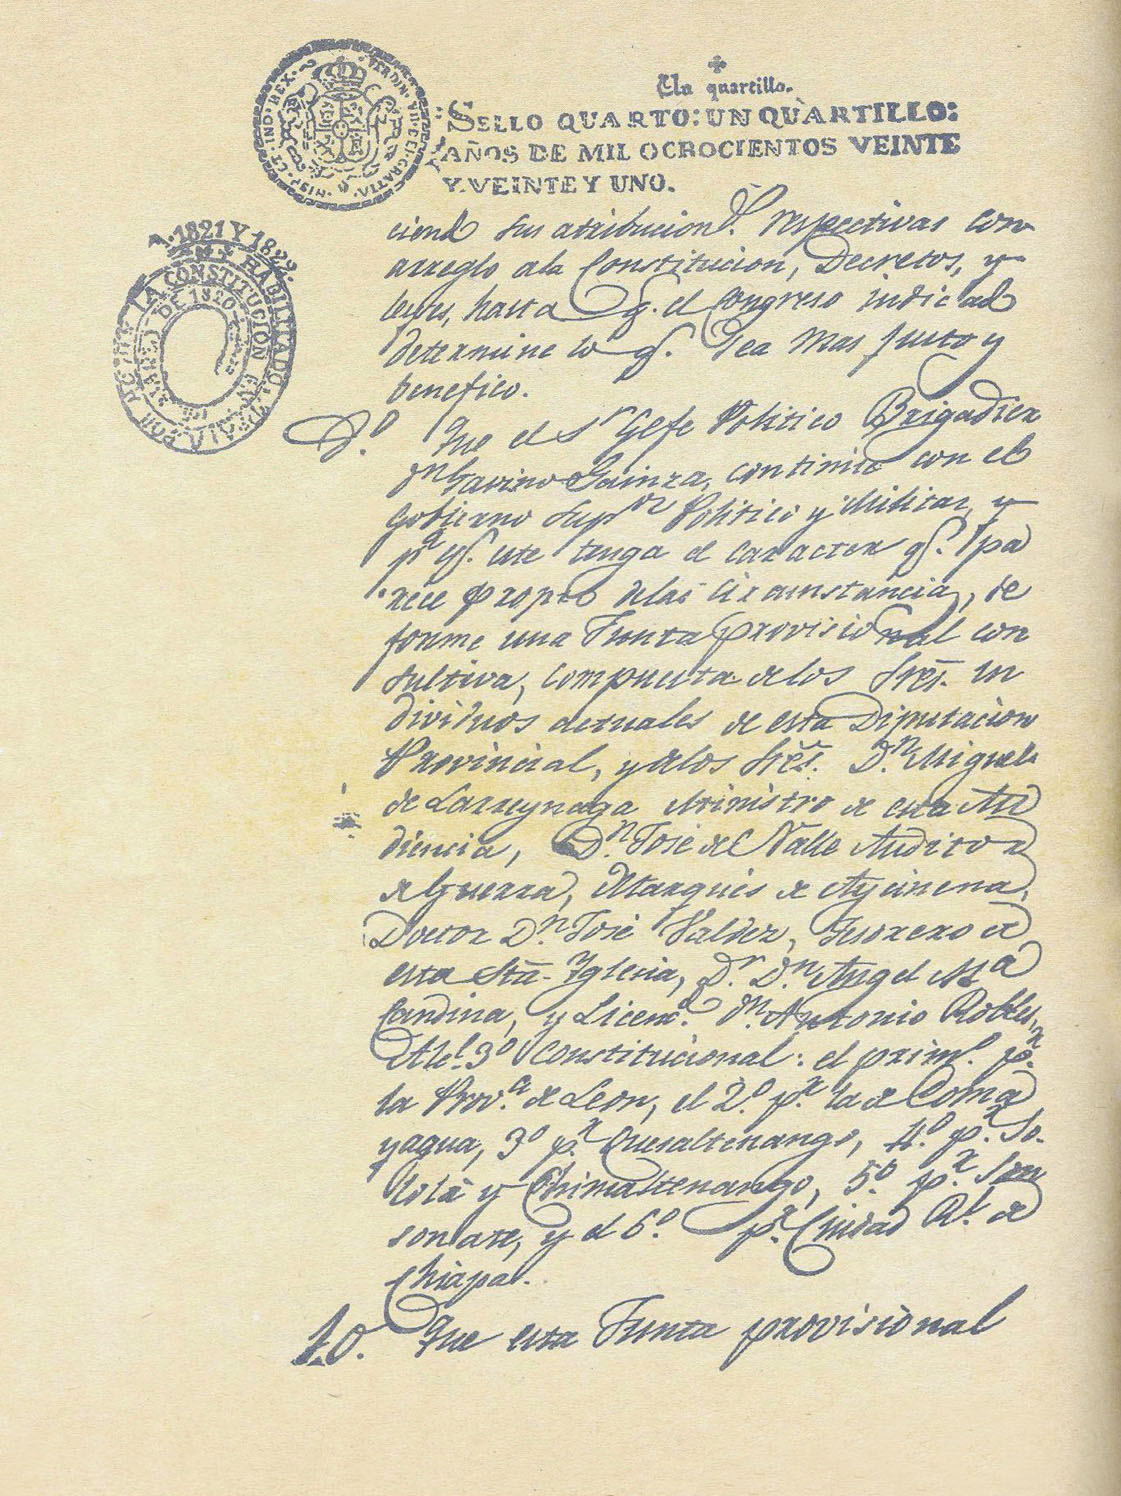 HISP. ET IND. REX. FERDIN. VII. DEI. GRATIA.
Un quartillo.
SELLO QUARTO: UN QUARTILLO:
AÑOS DE MIL OCHOCIENTOS VEINTE
Y VEINTE Y UNO.
A. 1821 Y 1822.
HABILITADO
LA CONSTITUCION EN
DE 1820
ciend sus atribucion.s respectivas con
arreglo ala Constitucion, Decretos, y
leyes, hasta q. el Congreso indicad
determine lo q. sea mas justo y
benefico.
Que el Sr Gefe Politico Brigadier
Dn Gavino Gainza, continúe con el
Gobierno Supor Politico y Militar, y
pa q. este tenga el caracter q. pa
rece propio delas circunstancias, se
forme una Junta provisional con
sultiva, compuesta delos Sres. in
dividuos actuales de esta Diputacion
Provincial, y delos Sres. Dn. Miguel
de Larreynaga Ministro de esta Au
diencia, Dn. José del Valle Auditor
de Guerra, Marques de Aycinena,
Doctor Dn. José Valdez, Tesorero de
esta Sta. Iglesia, Dr. Dn. Angel Ma
Candina, y Licendo. Dn. Antonio Robles,
Alcl. 3o Constitucional: el primo. pr.
la Prova. de Leon, el 2o. pr. la de Coma
yagua, 3o pr. Quesaltenango, 4o. pr. So-
lolá y Chimaltenango, 5o. pr. Son
sonate, y el 6o. pr. Ciudad Rl. de
Chiapa.
10. Que esta Junta provisional